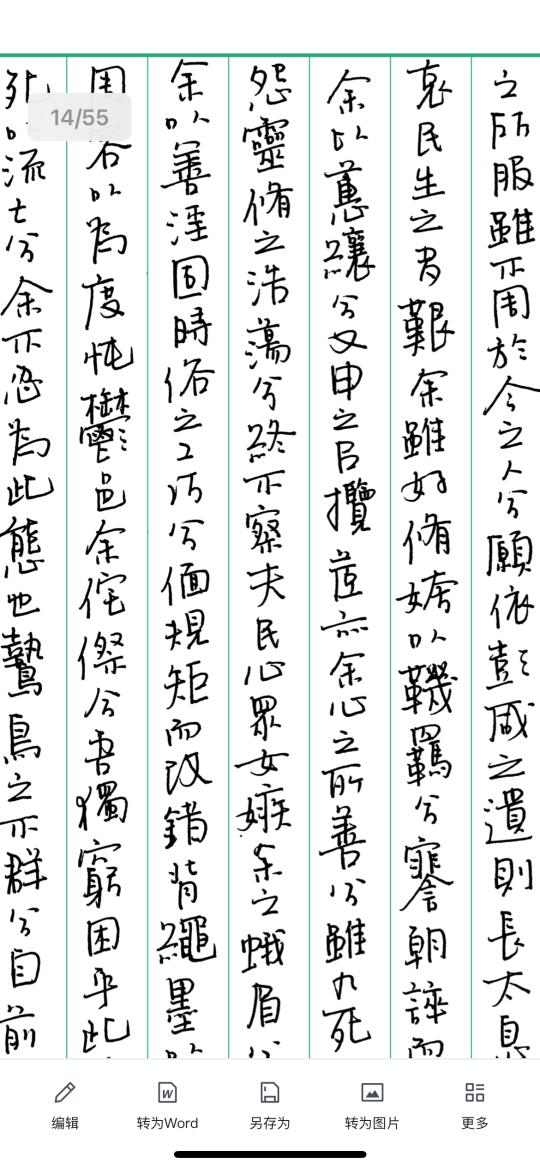 之所服雖不周於今之人兮願依彭咸之遺則長太息
哀民生之多艱余雖好脩姱以鞿羈兮謇朝誶而
余以蕙纕兮又申之以攬茝亦余心之所善兮雖九死
怨靈脩之浩蕩兮終不察夫民心眾女嫉余之蛾眉兮
余以善淫固時俗之工巧兮偭規矩而改錯背繩墨以
周容以為度忳鬱邑余侘傺兮吾獨窮困乎此
死以流亡兮余不忍為此態也鷙鳥之不群兮自前
14/55
编辑
转为Word
另存为
转为图片
更多